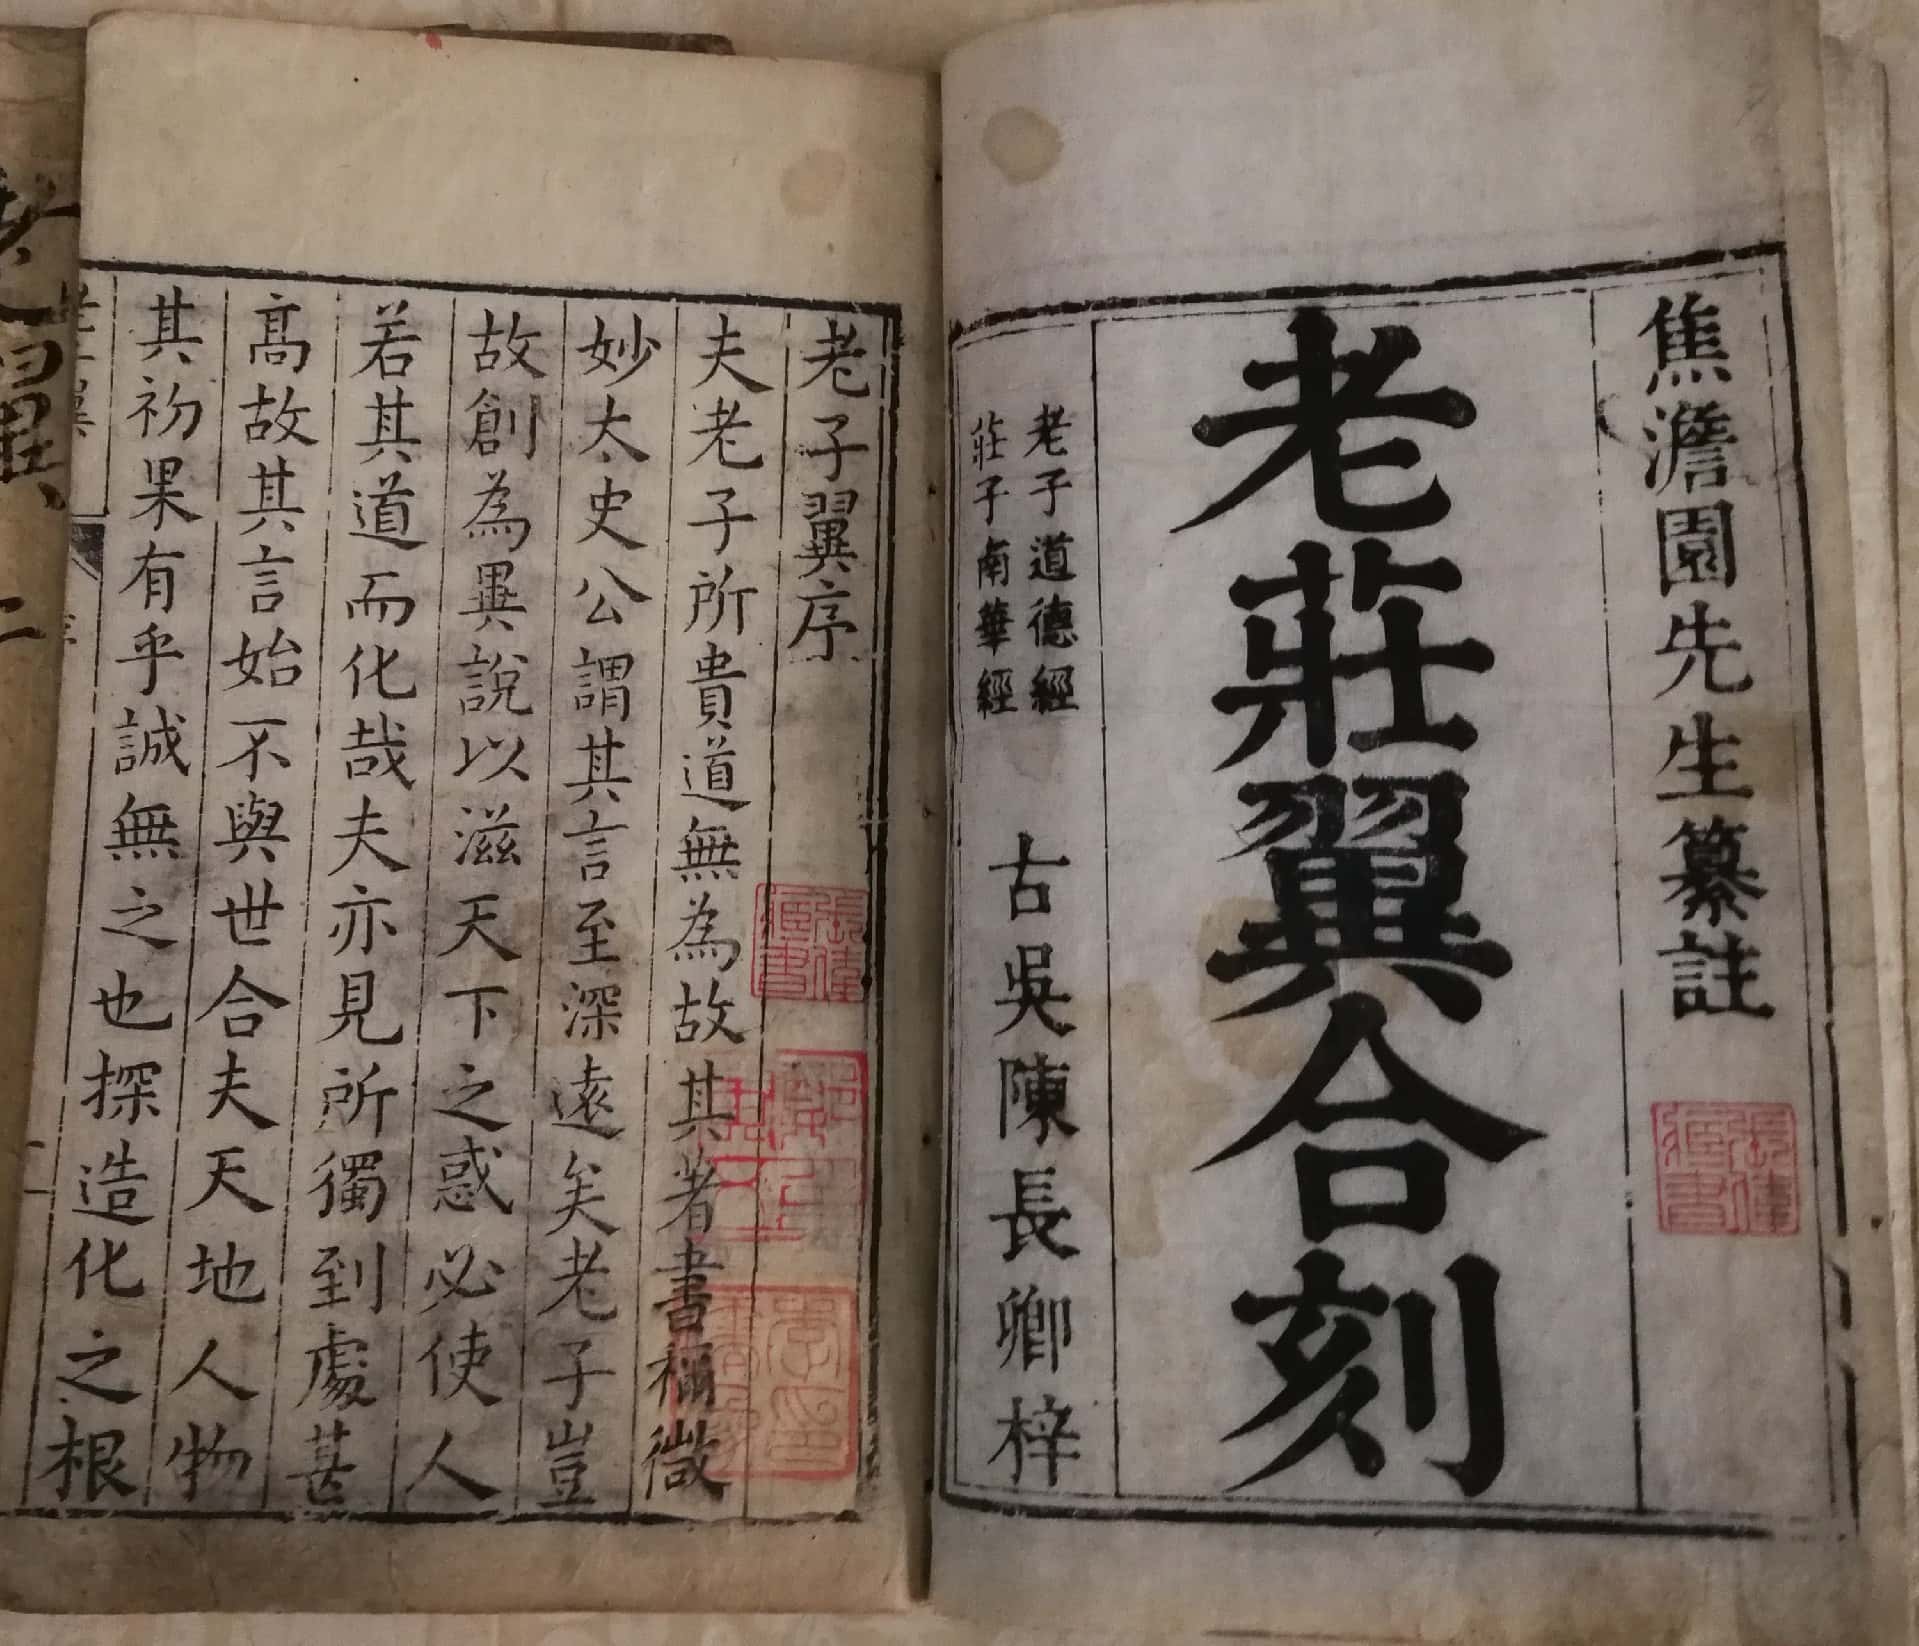 焦澹園先生纂註
老莊翼合刻
老子道德經
莊子南華經
古吳陳長卿梓
老子翼序
夫老子所貴道無為故其著書稱微
妙太史公謂其言至深遠矣老子豈
故創為異說以滋天下之惑必使人
若其道而化哉夫亦見所獨到處甚
高故其言始不與世合夫天地人物
其初果有乎誠無之也探造化之根